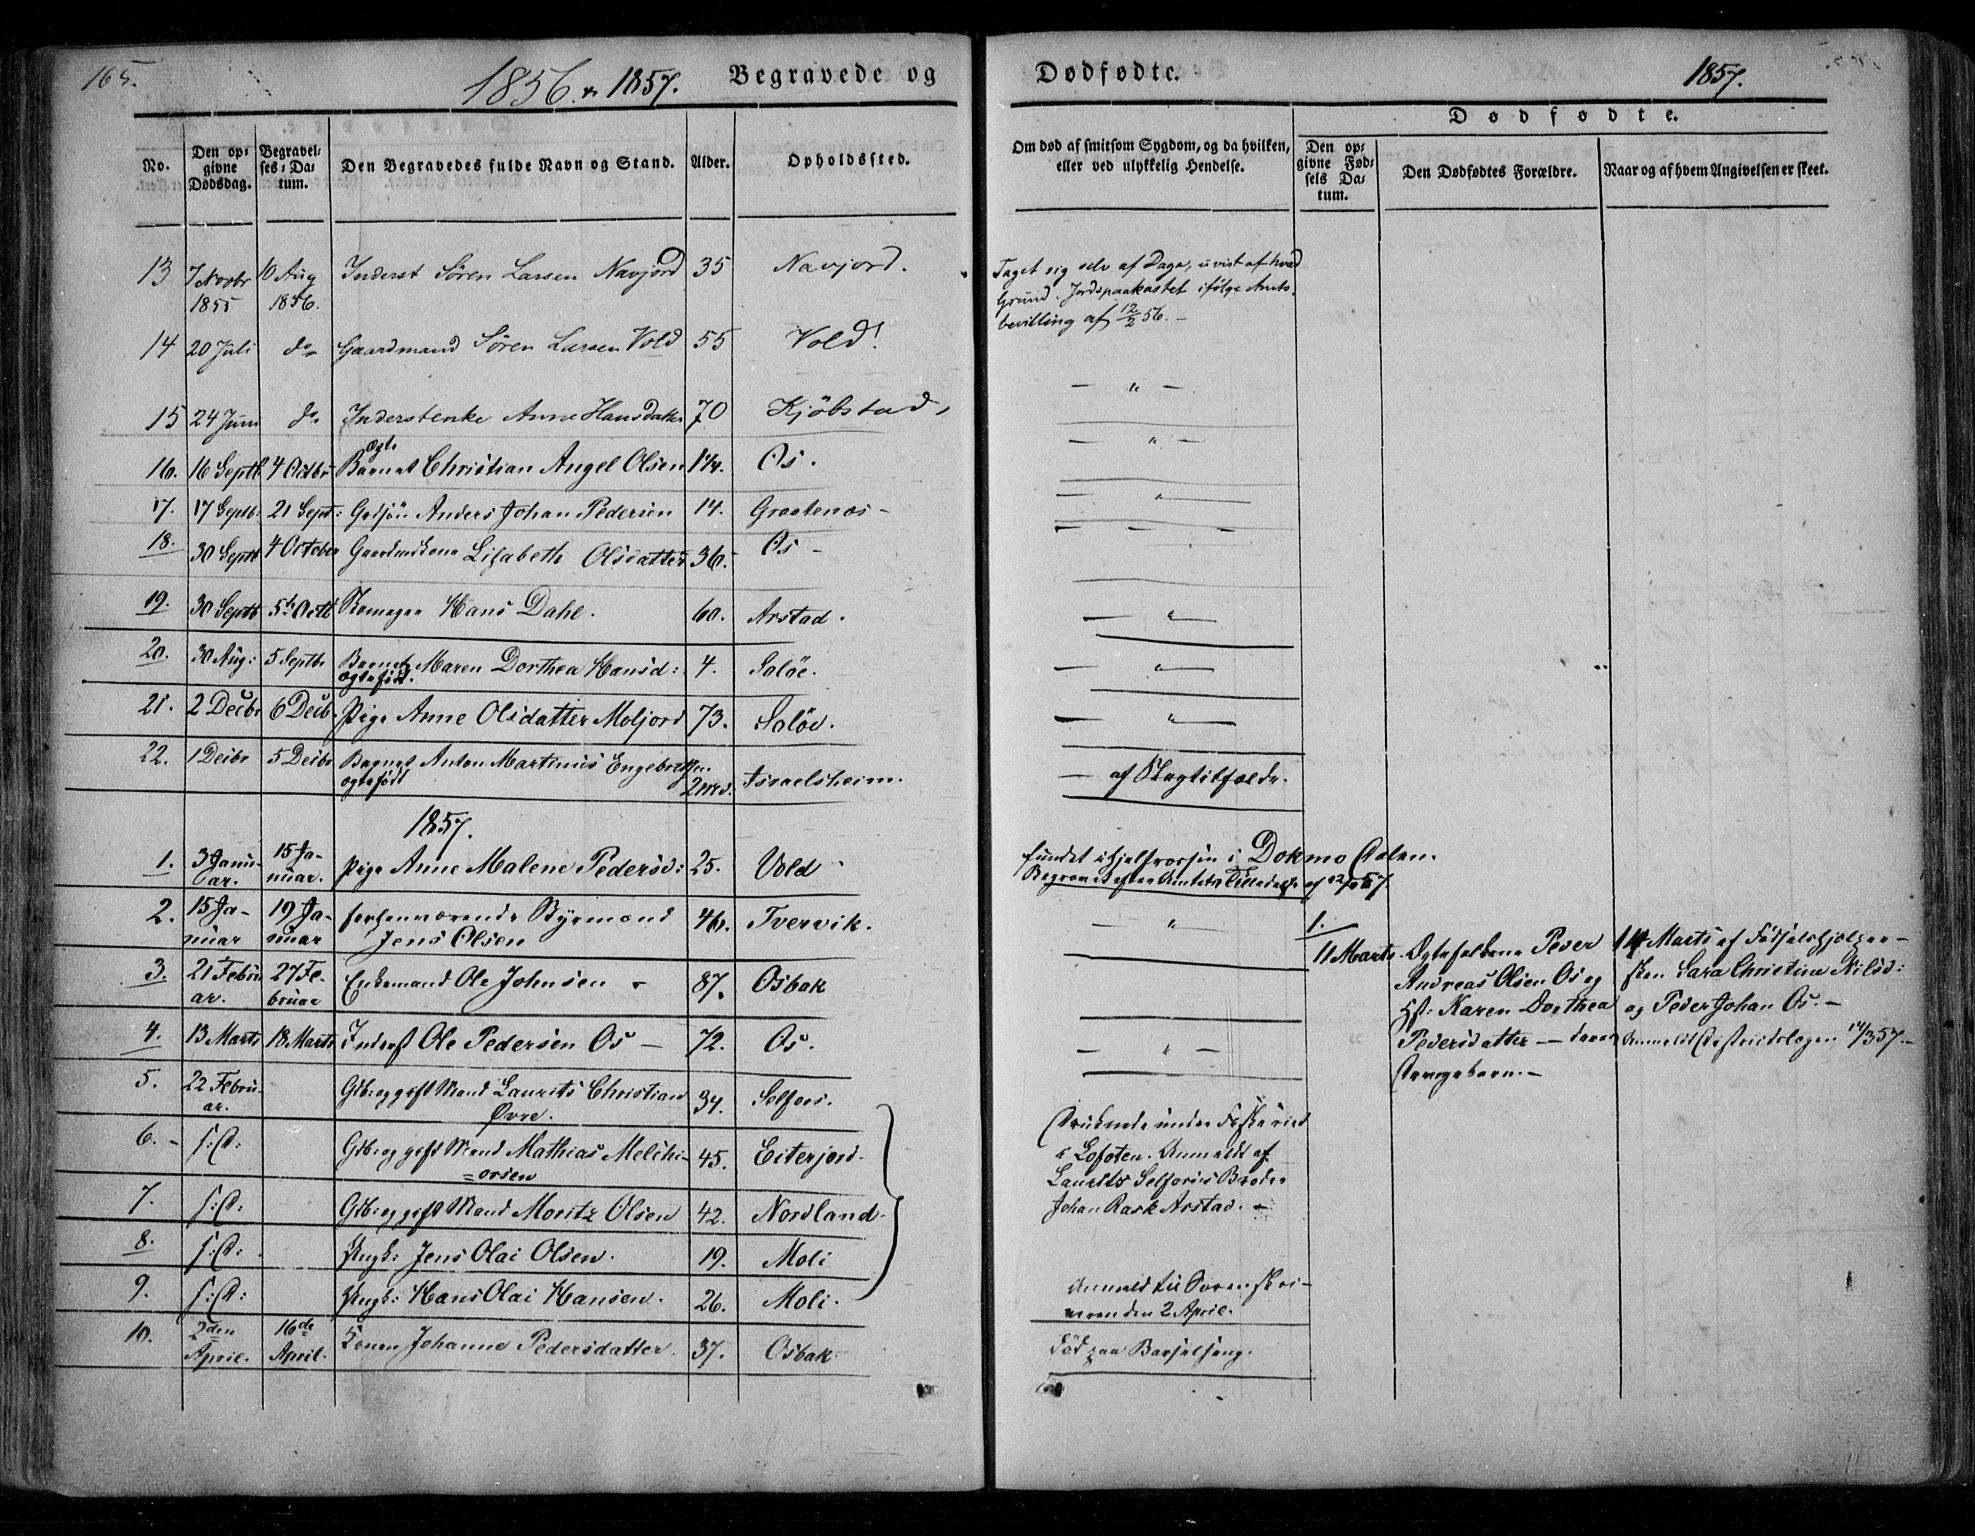 165.
1856 & 1857. Begravede og Dødfødte. 1857.
No.
Den opgivne Dødsdag.
Begravelses-Datum.
Den Begravedes fulde Navn og Stand.
Alder.
Opholdssted.
Om død af smitsom Sygdom, og da hvilken, eller ved ulykkelig Hendelse.
Dødfødte.
Den opgivne Fødsels Datum.
Den Dødfødtes Forældre.
Naar og af hvem Angivelsen er skeet.
13 7 Novbr 1855 10 Aug 1856. Inderst Søren Larsen Navjord 35 Navjord. Taget sig selv af Dage, uvist af hvad
Grund. Jordspaakastet ifølge Amts-
bevilling af 12/2 56. -
14 20 Juli do Gaardmand Søren Larsen Vold 55 Vold! - " -
15 24 Juni do Inderstenke Anne Hansdatter 70 Kjøbstad, - " -
16. 16 Septb. 4 Octbr Ægte Barnet Christian Angel Olsen 1¼. Os. - " -
17. 17 Septb: 21 Sept: Gutsøn Anders Johan Pedersen 14. Graatenæs - - - -
18. 30 Septb 4 October Gaardmdskone Lisabeth Olsdatter 36. Os -
19. 30 Septb 5te Octb Hans Dahl. 60. Arstad. - " -
20. 30 Aug: 5 Septb. Barnet Maren Dorthea Hansd: 4. Saløe. - " -
ægtefødt.
21. 2 Decbr 6 Decb. Pige Anne Olsdatter Moljord 73. Saløe. - " -
22. 1 Decbr 5 Decbr Barnet Anton Martinus Engebretsen. 2 md. Israelsheim. - af Slagtilfælde.
ægtefødt
1857.
1. 3 Januar. 15 Januar. Pige Anne Malene Pedersd: 25. Vold. fundet ihjelfrossen i Dokmo Dalen.
Begravet efter Amtets Tilladelse af
2. 15 Januar 19 Januar forhenværende Bygmand 46. Tvervik. - " -
Jens Olsen
3. 21 Februar. 27 Februar Enkemand Ole Johnsen - 87. Osbak
4. 13 Marts 18 Marts Inderst Ole Pedersen Os - 72. Os. - " -
5. 22 Februar. Gdbr: og gift Mand Laurits Christian 34. Selfors.
Øvre.
6. - s: D: Gdbr: og gift Mand Mathias Melchi- 45. Eiterjord.
=orsen
7. s: D: Gdbr: og gift Mand Moritz Olsen 42. Nordland.
8. s: D: Ungk: Jens Olai Olsen. 19. Moli
9. s: D: Ungk: Hans Olai Hansen. 26. Moli.
Druknede under Fiskeried
i Lofoten. Anmeldt af
Laurits Selforses Broder
Johan Rask Arstad. -
Anmeldt til Sorenskri-
veren den 2 April.
10. 2den April. 16de April. Konen Johanne Pedersdatter. 37. Osbak Død paa Barselseng.
1.
11 Marts. Ægtefolkene Peder
Andreas Olsen Os og
H: Karen Dorthea
Pedersdatter - deres
Drengebarn. -
14 Marts af Fødselshjelper-
sken Sara Christine Nilsd:
og Peder Johan Os. -
Anmeldt Districtslægen 14/3 57. -